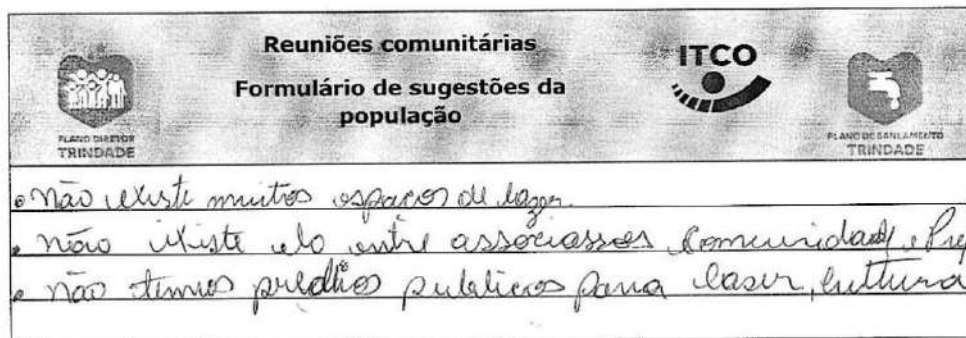 Reuniões comunitárias
Formulário de sugestões da
população
ITCO
PLANO DIRETOR
TRINDADE
PLANO DE SANEAMENTO
TRINDADE
• Não existe muitos espaços de lazer.
• não existe elo entre associassoes, Comunidade, e Pref
• não temos prédios publicos para laser, cultura